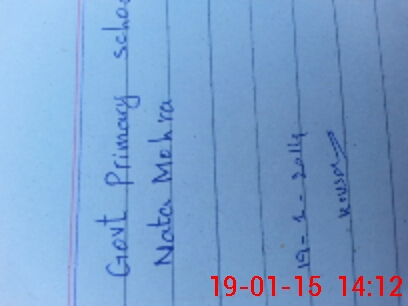 Govt Primary schoo
Nata Mohra
19-1-2014
Kousar
19-01-15 14:12